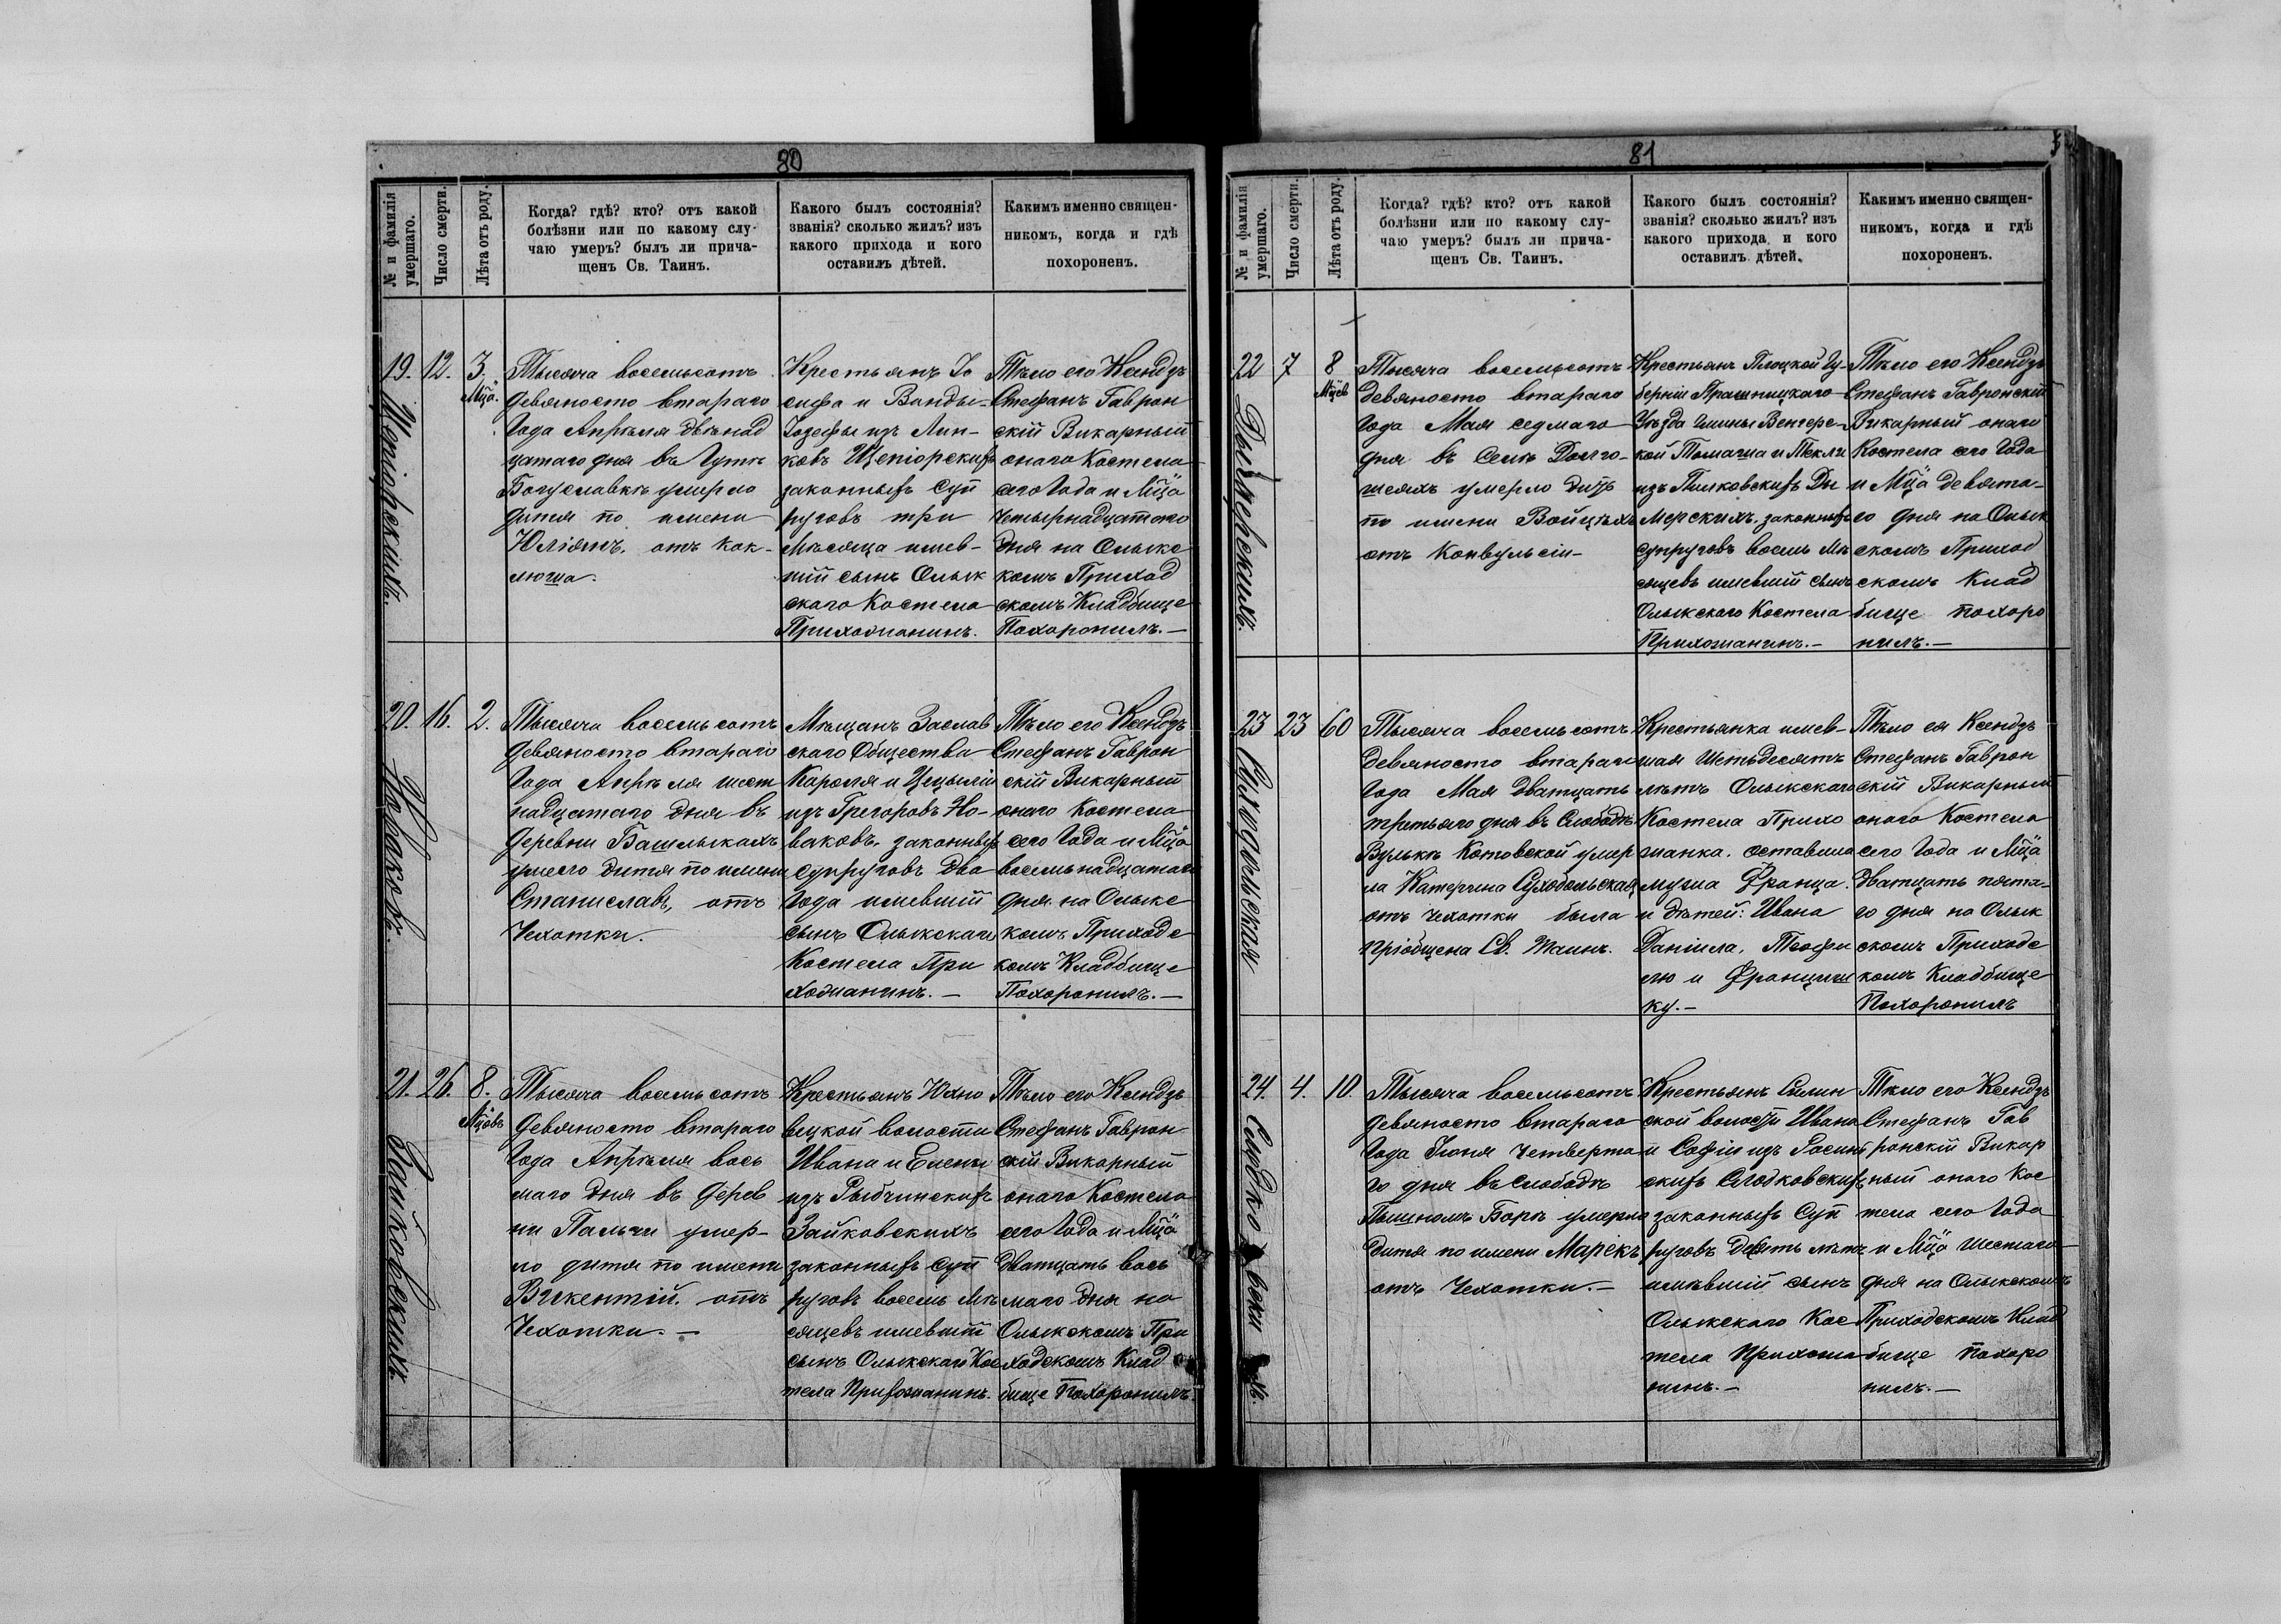 80
№ и фамилія умершаго.
Число смерти.
Лѣта отъ роду.
Когда? гдѣ? кто? отъ какой
болѣзни или по какому слу-
чаю умеръ? былъ ли прича-
щенъ Св. Таинъ.
Какого былъ состоянія?
званія? сколько жилъ? изъ
какого прихода и кого
оставилъ дѣтей.
Какимъ именно священ-
никомъ, когда и гдѣ
похороненъ.
19.
Щепіорскихъ.
12.
3.
Мцä.
Тысяча восемьсотъ
девяносто втараго
Года Апрѣля двѣнад
цатаго дня въ Гутѣ
Богуславкѣ умерло
дитя по имени
Юліянъ. отъ как-
люша.
Крестьянъ Іо
сифа и Ванды-
Іозефы изъ Лип-
ковъ Щепіорскихъ
законныхъ Суп
руговъ три
Мѣсяца имев-
шій сынъ Олык
скаго Костела
Прихожанинъ.
Тѣло его Ксендзъ
Стефанъ Гаврон
скій Викарный
онаго Костела
сего Года и Мцä
четырнадцатаго
дня на Олыкс
комъ Приход
скомъ Кладбище
Похоронилъ.—
20.
Новаковъ.
16.
2.
Тысяча восемьсотъ
девяносто втараго
Года Апрѣля шест
надцатаго дня въ
деревни Башлыкахъ
умерло дитя по имени
Станиславъ, отъ
Чехотки.
Мѣщанъ Заслав
скаго Общества
Кароля и Цецыліи
изъ Грегоровъ Но-
ваковъ, законныхъ
супруговъ два
Года имевшій
сынъ Олыкскаго
Костела При
хожанинъ.—
Тѣло его Ксендзъ
Стефанъ Гаврон
скій Викарный
онаго Костела
сего Года и Мцä
восемьнадцатаго
дня на Олыкс
комъ Приходс
комъ Кладбище
Похоронилъ.—
21.
Зайковскихъ.
26.
8.
Мцовъ
Тысяча восемьсотъ
девяносто втараго
Года Апрѣля вось
маго дня въ дерев
ни Пальчи умер-
ло дитя по имени
Викентій. отъ
Чехотки.—
Крестьянъ Юхно
вецкой волости
Ивана и Елены
изъ Рыбчинскихъ
Зайковскихъ
законныхъ суп
руговъ восемь мѣ
сяцевъ имевшій
сынъ Олыкскаго Кос
тела Прихожанинъ.
Тѣло его Ксендзъ
Стефанъ Гаврон
скій Викарный
онаго Костела
сего Года и Мцä
Дватцать вось
маго дня на
Олыкскомъ При
ходскомъ Клад
бище Похоронилъ.
81
№ и фамилія умершаго.
Число смерти.
Лѣта отъ роду.
Когда? гдѣ? кто? отъ какой
болѣзни или по какому слу-
чаю умеръ? былъ ли прича-
щенъ Св. Таинъ.
Какого былъ состоянія?
званія? сколько жилъ? изъ
какого прихода и кого
оставилъ дѣтей.
Какимъ именно священ-
никомъ, когда и гдѣ
похороненъ.
22
7
8
Мцев
Тысяча восемьсотъ
девяносто втараго
Года Мая седмаго
дня въ Селѣ Долго-
шеяхъ умерло дитъ
по имени Войцѣхъ
отъ Конвульсіи-
Крестьянъ Плоцкой Гу-
берніи Прашницкаго
Уѣзда Гмины Венгерс-
кой Томаша и Текли
изъ Пилковскихъ Ды
мерскихъ. законныхъ
супруговъ восемь мѣ
сяцевъ имевшій сынъ
Олыкскаго Костела
Прихожанинъ.—
Тѣло его Ксендзъ
Стефанъ Гавронскій
Викарный онаго
Костела сего Года
и Мцä девята-
го дня на Олык
скомъ Приход
скомъ Клад
бище похоро
нилъ.—
23
Суходольская
23
60
Тысяча восемьсотъ
девяносто втараго
Года Мая дватцать
третьяго дня въ Слободѣ
Вулькѣ Котовской умер
ла Катерина Суходольская,
отъ чехотки была
пріобщена Св. Таинъ.
Крестьянка имев-
шая Шетьдесятъ
лѣтъ Олыкскаго
Костела Прихо
жанка. оставила
мужа Франца.
и дѣтей: Ивана
Даніила, Теофи
лю и Францишк
ку.—
Тѣло ея Ксендзъ
Стефанъ Гаврон
скій Викарный
онаго Костела
сего Года и Мцä
Дватцать пята-
го дня на Олык
скомъ Приходс
комъ Кладбище
Похоронилъ
24.
4.
10.
Тысяча восемьсотъ
девяносто втараго
Года Іюня четверта
го дня въ слободѣ
Пышномъ Борѣ умерло
дитя по имени Марісъ
отъ Чехотки.—
Крестьянъ Силин
ской волости Ивана
и Софіи изъ Росин
скихъ Слодковскихъ,
законныхъ Суп
руговъ десять лѣтъ
имѣвшій сынъ
Олыкского Кос
тела Прихожа
нинъ.—
Тѣло его Ксендзъ
Стефанъ Гав
ронскій Викар
ный онаго Кос
тела сего Года
и Мцä Шестаго
дня на Олыкскомъ
Приходскомъ Клад
бище похоро
нилъ.—